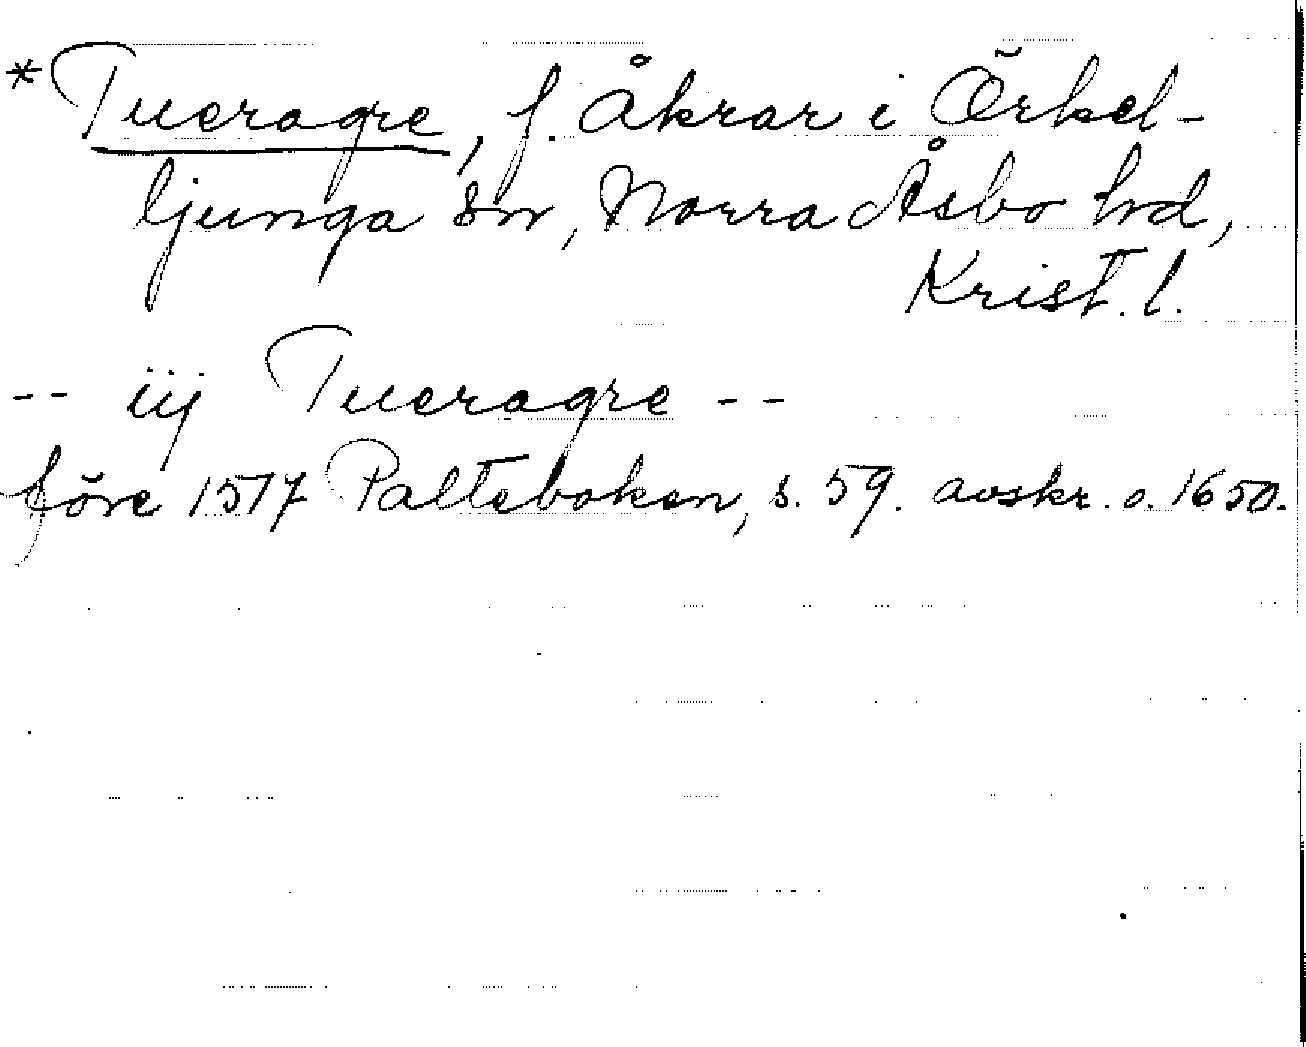 *Tueragre, f. Åkrar i Örkel-
ljunga sn, Norra Åsbo hd,
Krist. l.
-- iij Tueragre --
före 1517 Palteboken, s. 59. avskr. o. 1650.